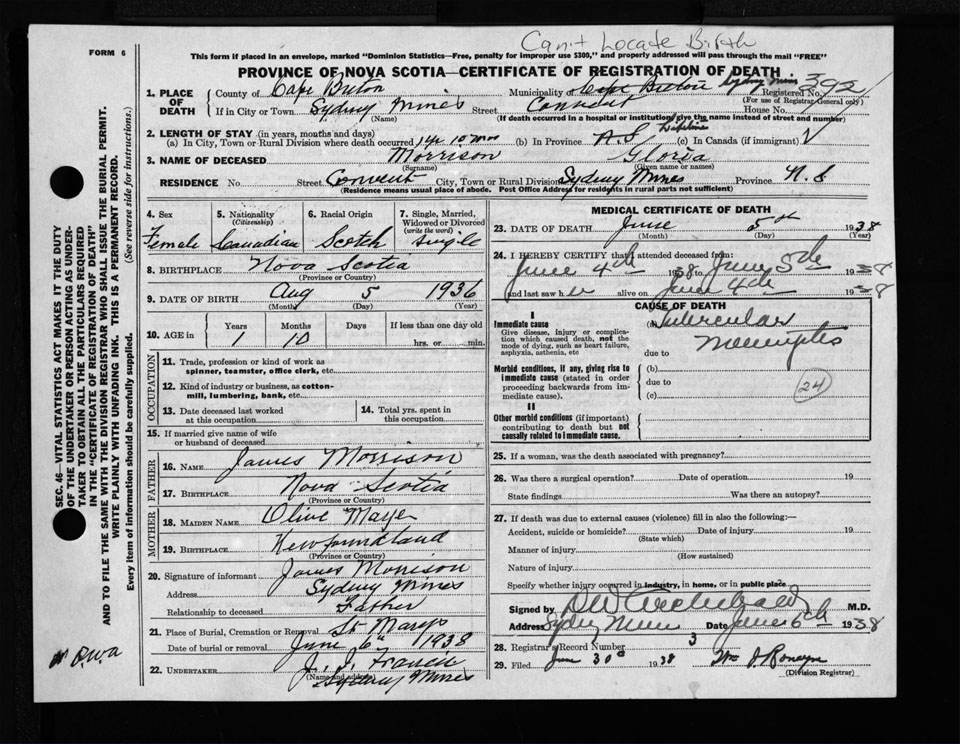 Can't Locate Birth
FORM 6
This form if placed in an envelope, marked "Dominion Statistics—Free, penalty for improper use $300," and properly addressed will pass through the mail "FREE"
PROVINCE OF NOVA SCOTIA—CERTIFICATE OF REGISTRATION OF DEATH
1. PLACE OF DEATH County of Cape Breton Municipality of Cape Breton Sydney Mines Registered No. 392
(For use of Registrar General only)
If in City or Town Sydney Mines Street Convent House No.
(Name) (If death occurred in a hospital or institution, give the name instead of street and number)
2. LENGTH OF STAY (in years, months and days)
(a) In City, Town or Rural Division where death occurred 1 yr 10 mos (b) In Province N.S. Lifetime (c) In Canada (if immigrant)
3. NAME OF DECEASED Morrison Gloria
(Surname) (Given name or names)
RESIDENCE No. Street Convent City, Town or Rural Division Sydney Mines Province N.S
(Residence means usual place of abode. Post Office Address for residents in rural parts not sufficient)
SEC. 46—VITAL STATISTICS ACT MAKES IT THE DUTY
OF THE UNDERTAKER OR PERSON ACTING AS UNDER-
TAKER TO OBTAIN ALL THE PARTICULARS REQUIRED
IN THE "CERTIFICATE OF REGISTRATION OF DEATH"
AND TO FILE THE SAME WITH THE DIVISION REGISTRAR WHO SHALL ISSUE THE BURIAL PERMIT.
WRITE PLAINLY WITH UNFADING INK. THIS IS A PERMANENT RECORD.
Every item of information should be carefully supplied. (See reverse side for instructions.)
4. Sex 5. Nationality 6. Racial Origin 7. Single, Married,
(Citizenship) Widowed or Divorced
(write the word)
Female Canadian Scotch Single
8. BIRTHPLACE Nova Scotia
(Province or Country)
9. DATE OF BIRTH Aug 5 1936
(Month) (Day) (Year)
10. AGE IN Years Months Days If less than one day old
1 10 hrs. or min.
OCCUPATION
11. Trade, profession or kind of work as
spinner, teamster, office clerk, etc.
12. Kind of industry or business, as cotton-
mill, lumbering, bank, etc.
13. Date deceased last worked
at this occupation
14. Total yrs. spent in
this occupation
15. If married give name of wife
or husband of deceased
FATHER
16. NAME James Morrison
17. BIRTHPLACE Nova Scotia
MOTHER
18. MAIDEN NAME Olive
19. BIRTHPLACE Newfoundland
(Province or Country)
20. Signature of informant James Morrison
Address Sydney Mines
Relationship to deceased Father
21. Place of Burial, Cremation or Removal St Marys
Date of burial or removal June 6th 1938
22. UNDERTAKER J. J. Francis
(Name and address) Sydney Mines
MEDICAL CERTIFICATE OF DEATH
23. DATE OF DEATH June 5th 1938
(Month) (Day) (Year)
24. I HEREBY CERTIFY that I attended deceased from:
June 4th 1938 to June 5th 1938
and last saw her alive on June 4th 1938
CAUSE OF DEATH
I
Immediate cause (a) Tubercular
Give disease, injury or complica-
tion which caused death, not the
mode of dying, such as heart failure,
asphyxia, asthenia, etc
due to Meningitis
Morbid conditions, if any, giving rise to
immediate cause (stated in order
proceeding backwards from im-
mediate cause).
(b)
due to
(c)
24
II
Other morbid conditions (if important)
contributing to death but not
causally related to immediate cause.
25. If a woman, was the death associated with pregnancy?
26. Was there a surgical operation? Date of operation 19
State findings Was there an autopsy?
27. If death was due to external causes (violence) fill in also the following:—
Accident, suicide or homicide? Date of injury 19
(State which)
Manner of injury
(How sustained)
Nature of injury
Specify whether injury occurred in industry, in home, or in public place
Signed by D W Archibald M.D.
Address Sydney Mines Date June 6th 1938
28. Registrar's Record Number 3
29. Filed June 30th 1938 Wm J Ronayne
(Division Registrar)